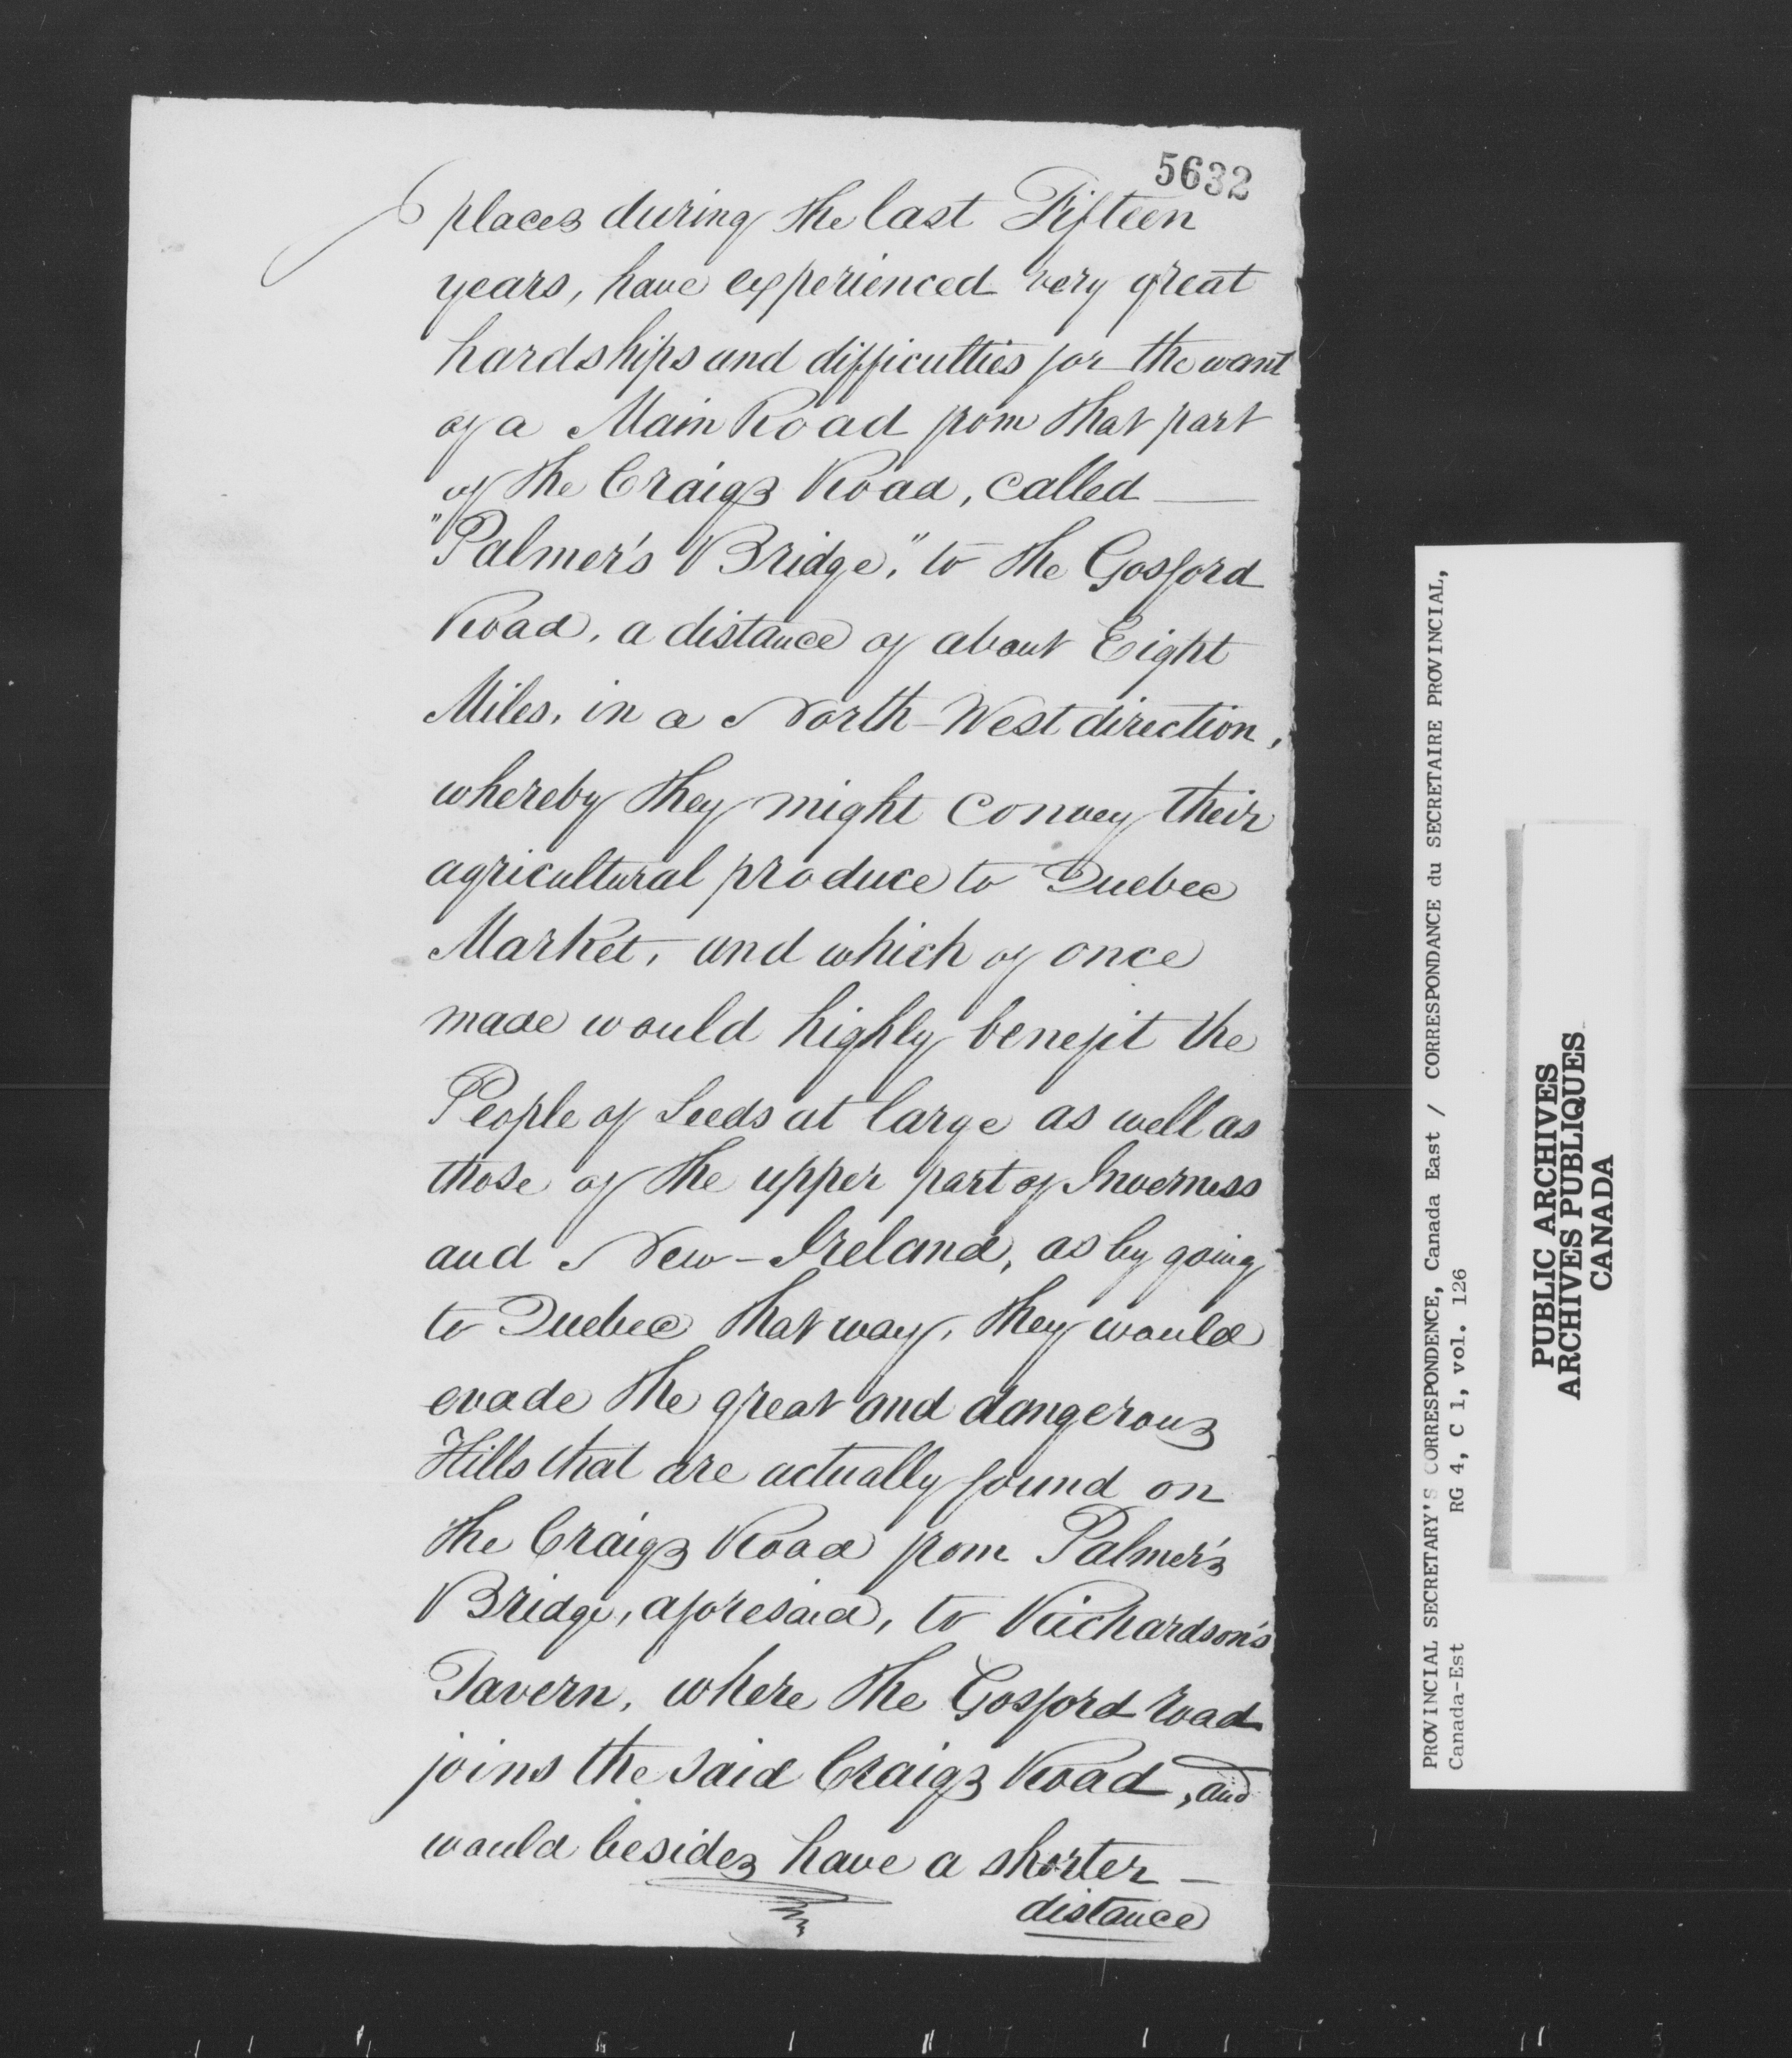 5632
places during the last Fifteen
years, have experienced very great
hardships and difficulties for the want
of a Main Road from that part
of the Craigs Road, called
"Palmer's Bridge," to the Gosford
Road, a distance of about Eight
Miles, in a North-West direction,
whereby they might convey their
agricultural produce to Quebec
Market, and which if once
made would highly benefit the
People of Leeds at large as well as
those of the upper part of Inverness
and New-Ireland, as by going
to Quebec that way, they would
evade the great and dangerous
Hills that are actually found on
the Craigs Road from Palmer's
Bridge, aforesaid, to Richardson's
Tavern, where the Gosford road
joins the said Craigs Road, and
would besides have a shorter
distance
PROVINCIAL SECRETARY'S CORRESPONDENCE, Canada East / CORRESPONDANCE du SECRETAIRE PROVINCIAL,
Canada-Est RG 4, C 1, vol. 126
PUBLIC ARCHIVES
ARCHIVES PUBLIQUES
CANADA